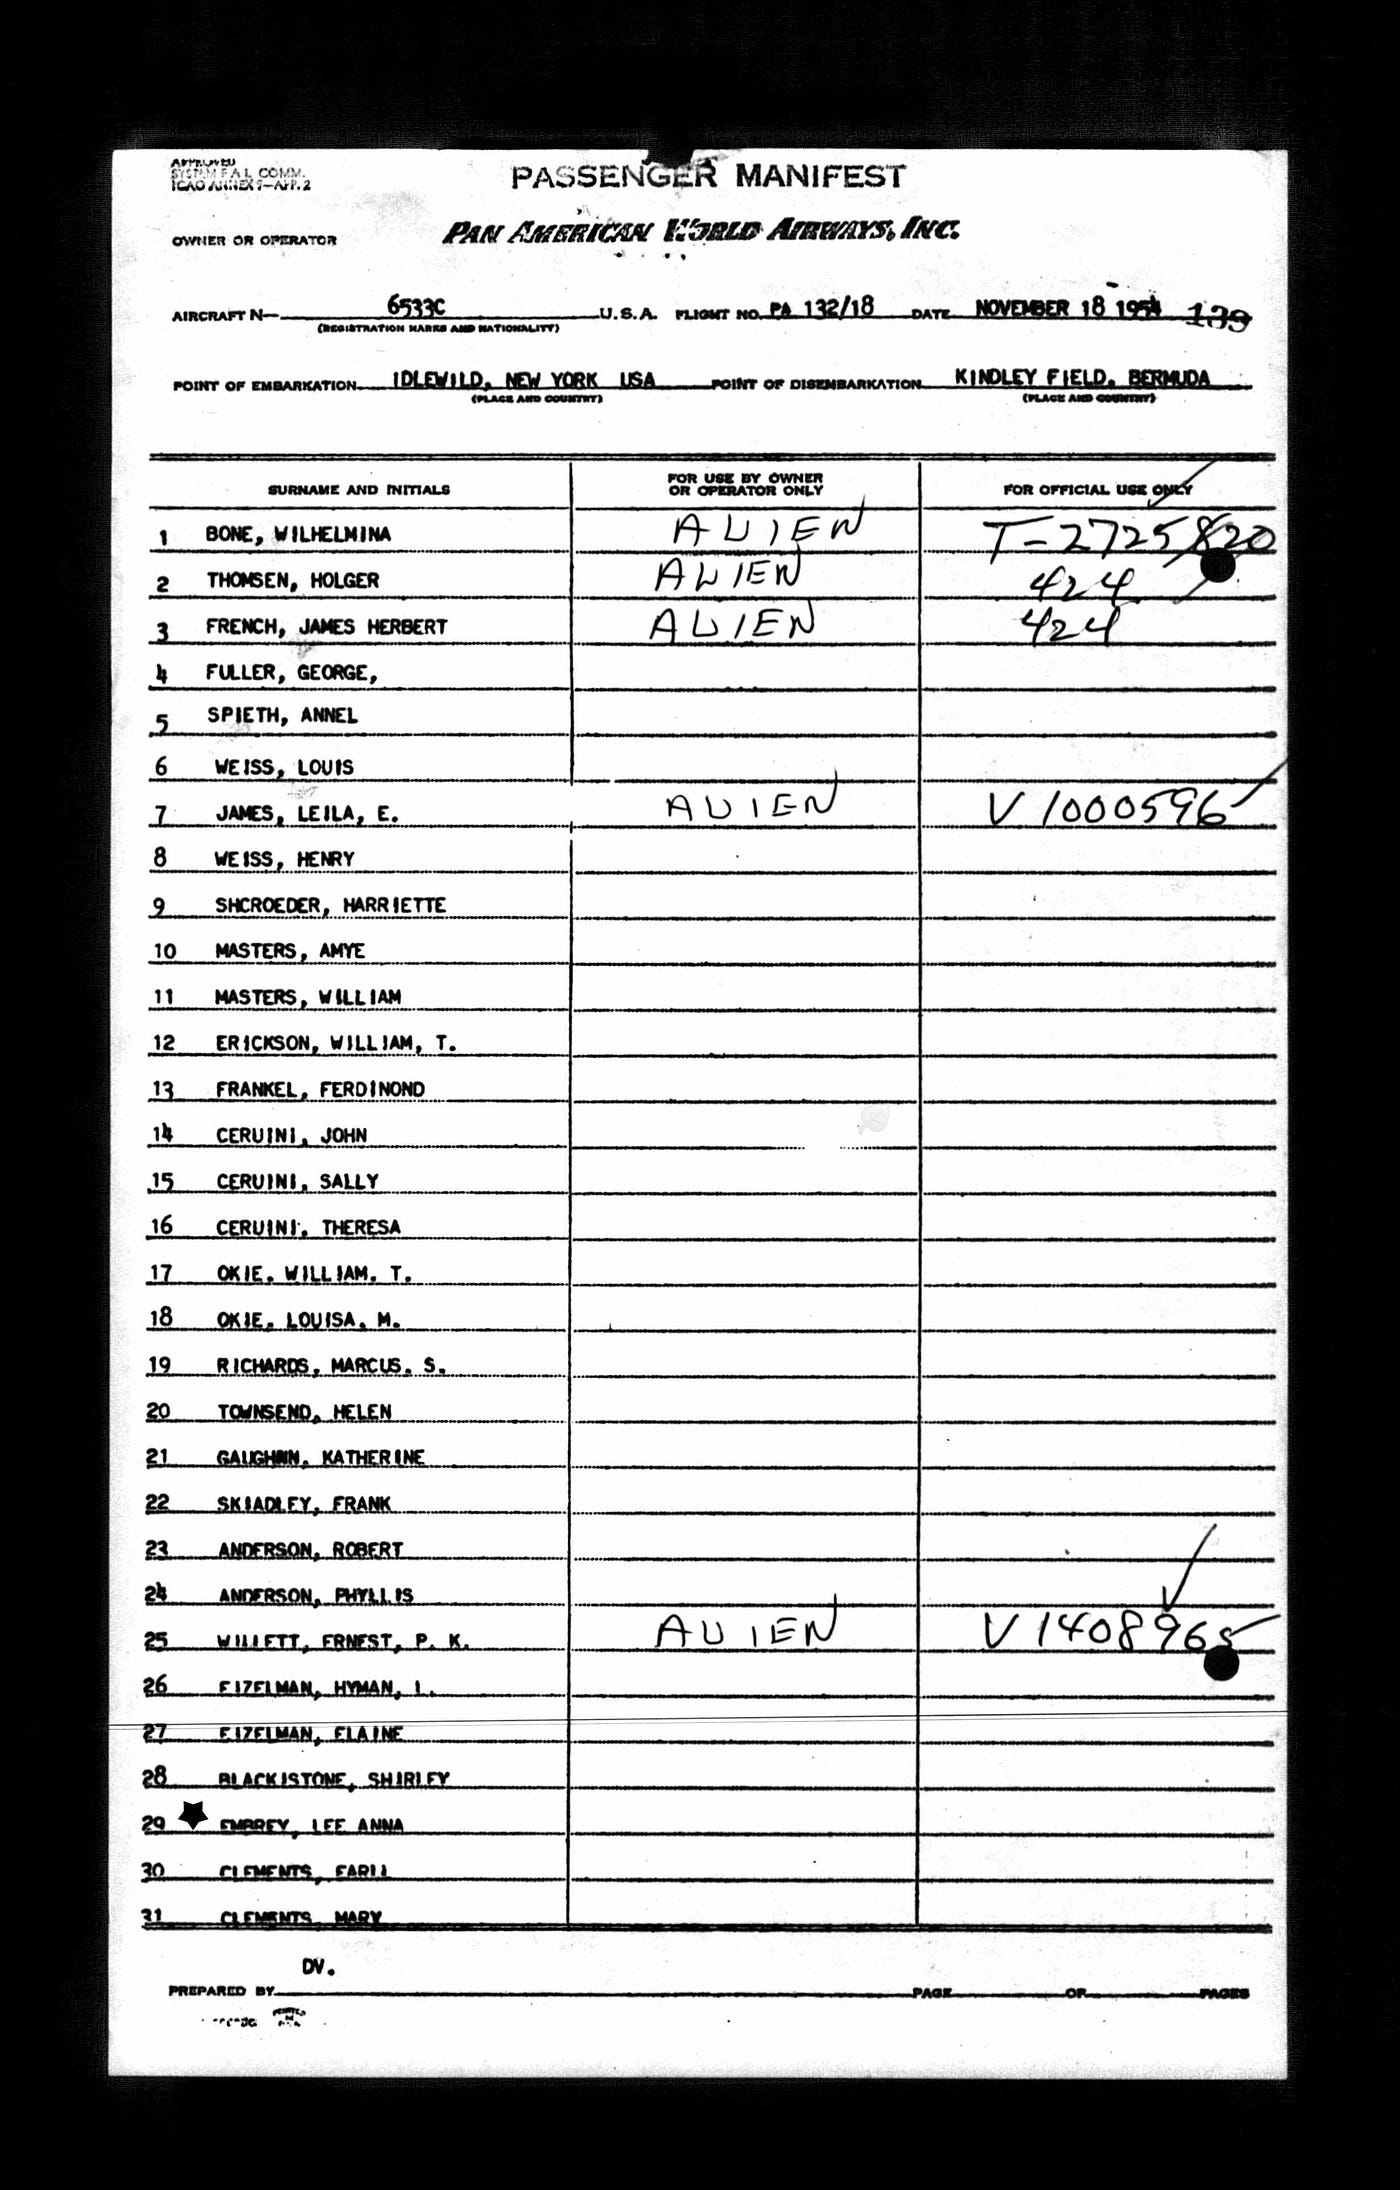 APPROVED
SYSTEM F A L COMM.
ICAO ANNEX 9—APP. 2
PASSENGER MANIFEST
OWNER OR OPERATOR PAN AMERICAN WORLD AIRWAYS, INC.
AIRCRAFT N— 6533C U.S.A. FLIGHT NO. PA 132/18 DATE NOVEMBER 18 1954 139
(REGISTRATION MARKS AND NATIONALITY)
POINT OF EMBARKATION IDLEWILD, NEW YORK USA POINT OF DISEMBARKATION KINDLEY FIELD, BERMUDA
(PLACE AND COUNTRY) (PLACE AND COUNTRY)
SURNAME AND INITIALS FOR USE BY OWNER OR OPERATOR ONLY FOR OFFICIAL USE ONLY
1 BONE, WILHELMINA ALIEN T-2725820
2 THOMSEN, HOLGER ALIEN 424
3 FRENCH, JAMES HERBERT ALIEN 424
4 FULLER, GEORGE,
5 SPIETH, ANNEL
6 WEISS, LOUIS
7 JAMES, LEILA, E. ALIEN V 1000596
8 WEISS, HENRY
9 SHCROEDER, HARRIETTE
10 MASTERS, AMYE
11 MASTERS, WILLIAM
12 ERICKSON, WILLIAM, T.
13 FRANKEL, FERDINOND
14 CERUINI, JOHN
15 CERUINI, SALLY
16 CERUINI, THERESA
17 OKIE, WILLIAM, T.
18 OKIE, LOUISA, M.
19 RICHARDS, MARCUS, S.
20 TOWNSEND, HELEN
21 GAUGHNN, KATHERINE
22 SKIADLEY, FRANK
23 ANDERSON, ROBERT
24 ANDERSON, PHYLLIS
25 WILLETT, ERNEST, P. K. ALIEN V 1408965
26 EIZELMAN, HYMAN, I.
27 EIZELMAN, ELAINE
28 BLACKISTONE, SHIRLEY
29 EMBREY, LEE ANNA
30 CLEMENTS, EARLL
31 CLEMENTS, MARY
DV.
PREPARED BY PAGE OF PAGES
PRINTED IN